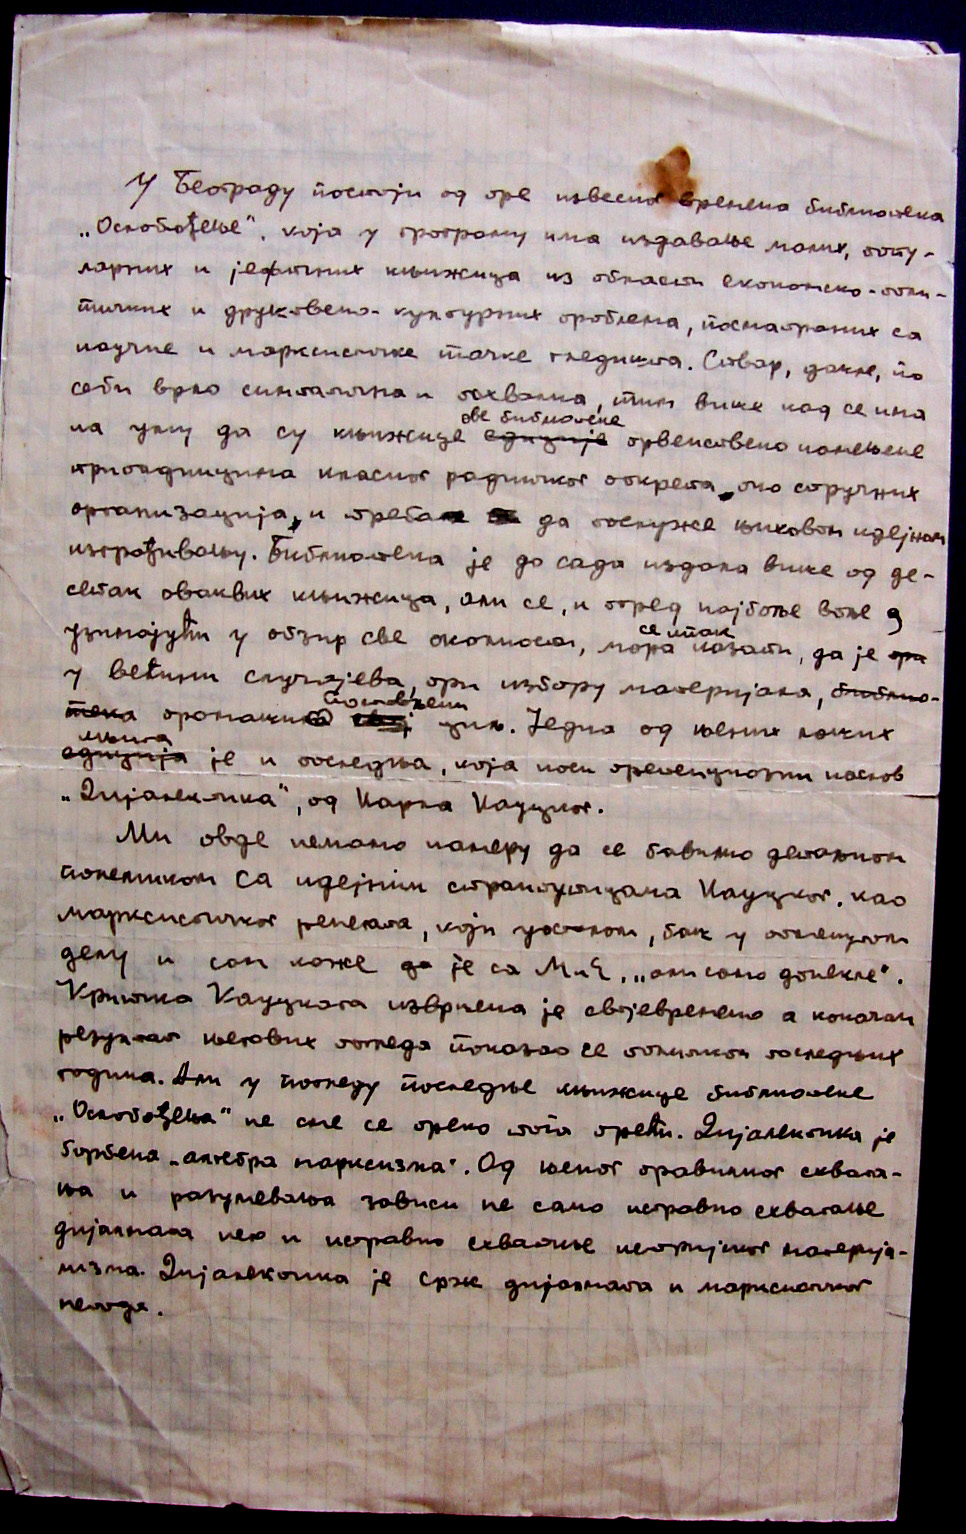 У Београду постоји од пре извесног времена библиотека
„Ослобођење“, која у програму има издавање малих, попу-
ларних и јефтиних књижица из области економско-поли-
тичких и друштвено-културних проблема, посматраних са
научне и марксистичке тачке гледишта. Ствар, дакле, по
себи врло симпатична и похвална, тим више кад се има
на уму да су књижице ове библиотеке едиције првенствено намењене
припадницима класног радничког покрета, опо стручних
организација, и треба да послуже њиховом идејном
изграђивању. Библиотека је до сада издала више од де-
сетак оваквих књижица, али се, и поред најбоље воље и
узимајући у обзир све околности, мора се ипак казати, да је
у већини случајева, при избору материјала, библио-
тека промашила постављени циљ. Једна од њених лоших
књига едиција је и последња, која носи претенциозни наслов
„Дијалектика“, од Карла Кауцког.
Ми овде немамо намеру да се бавимо детаљном
полемиком са идејним странпутицама Кауцког, као
марксистичког ренегата, који уосталом, баш у поменутом
делу и сам каже да је са М и Е, „али само донекле“.
Критика Кауцкога извршена је својевремено а коначан
резултат његових погледа показао се политиком последњих
година. Али у погледу последње књижице библиотеке
„Ослобођења“ не сме се преко тога прећи. Дијалектика је
борбена „алгебра марксизма“. Од њеног правилног схвата-
ња и разумевања зависи не само исправно схватање
дијалмата него и исправно схватање историјског материја-
лизма. Дијалектика је срж дијалмата и марксистичког
метода.